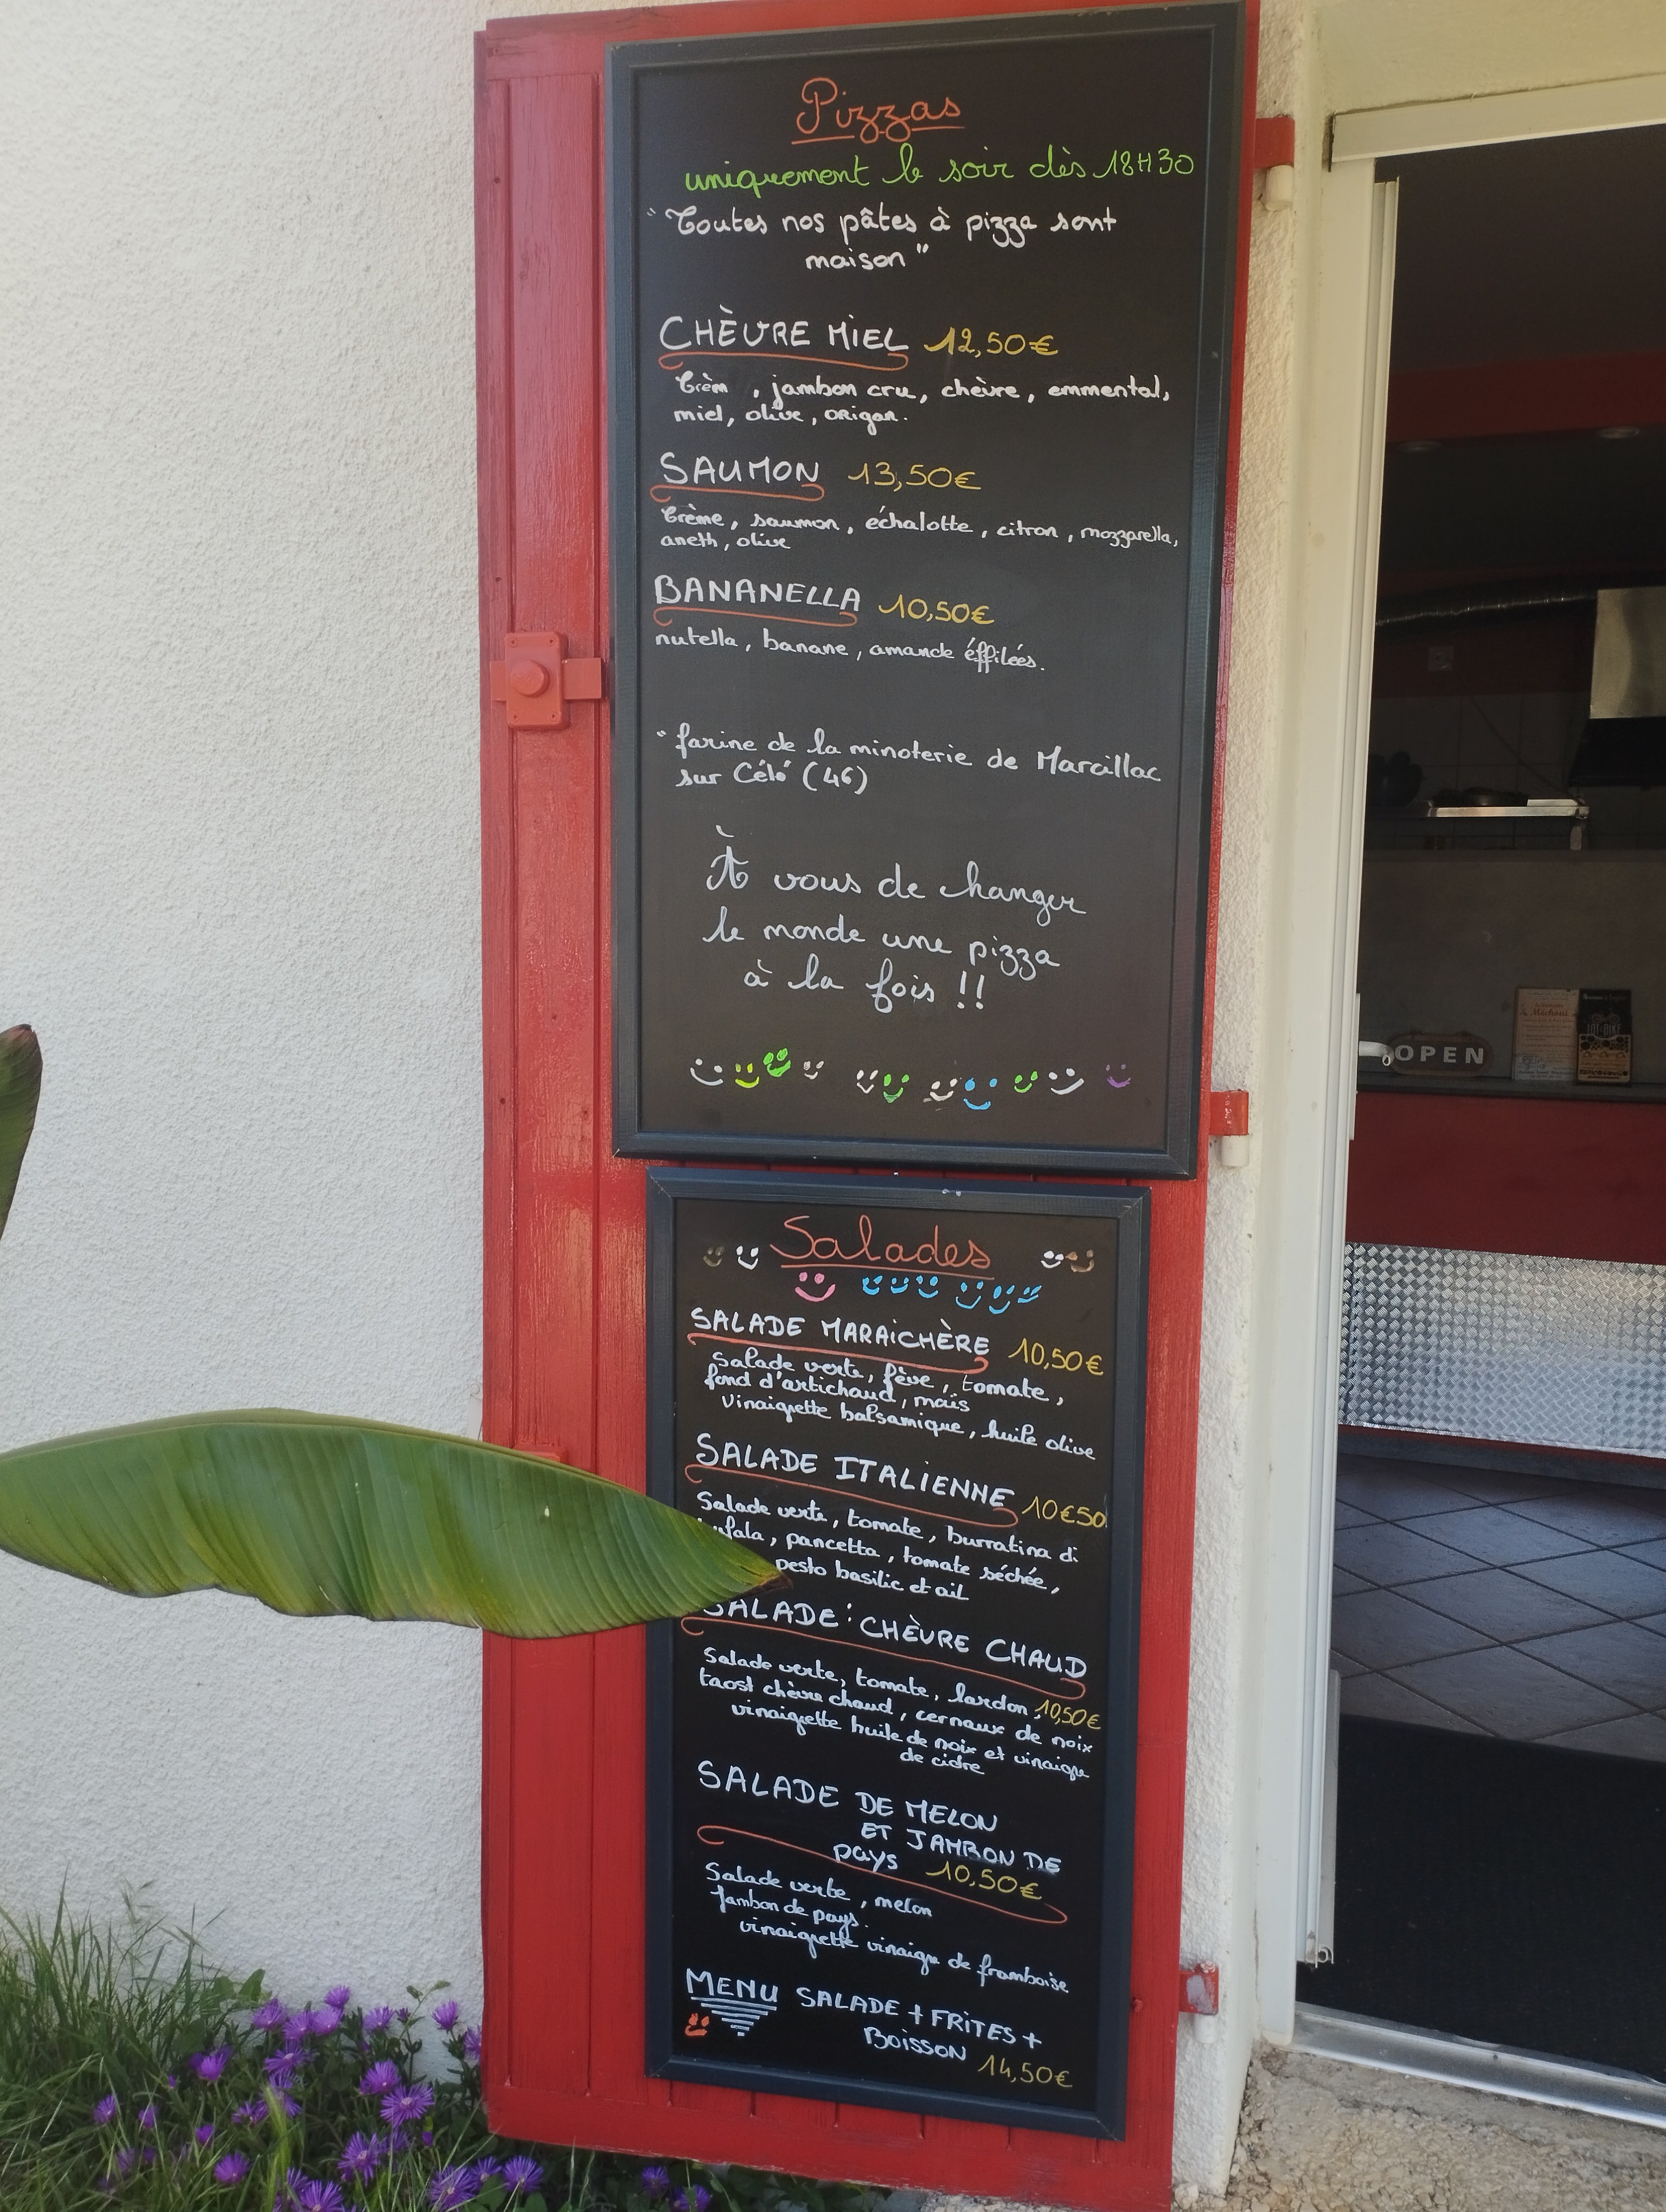 Pizzas
uniquement le soir dès 18H30
"Toutes nos pâtes à pizza sont
maison"
CHÈVRE MIEL 12,50€
Crèm , jambon cru, chèvre, emmental,
miel, olive, origan.
SAUMON 13,50€
Crème, saumon, échalotte, citron, mozzarella,
aneth, olive
BANANELLA 10,50€
nutella, banane, amande éffilées.
"farine de la minoterie de Marcillac
sur Célé (46)
À vous de changer
le monde une pizza
à la fois !!
OPEN
Salades
SALADE MARAiCHÈRE 10,50€
Salade verte, fève, tomate,
fond d'artichaud, maïs
Vinaigrette balsamique, huile olive
SALADE ITALIENNE 10€50
Salade verte, tomate, burratina di
ufala, pancetta, tomate séchée,
pesto basilic et ail
SALADE: CHÈVRE CHAUD
Salade verte, tomate, lardon, 10,50€
taost chèvre chaud, cernaux de noix
vinaigrette huile de noix et vinaigre
de cidre
SALADE DE MELON
ET JAMBON DE
pays 10,50€
Salade verte, melon
Jambon de pays.
vinaigrette vinaigre de framboise
MENU SALADE + FRITES +
BOISSON 14,50€